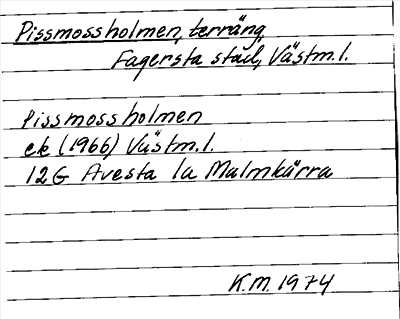 Pissmossholmen, terräng,
Fagersta stad, Västm.l.
Pissmossholmen
ek (1966) Västm.l.
12G Avesta 1a Malmkärra
K.M. 1974